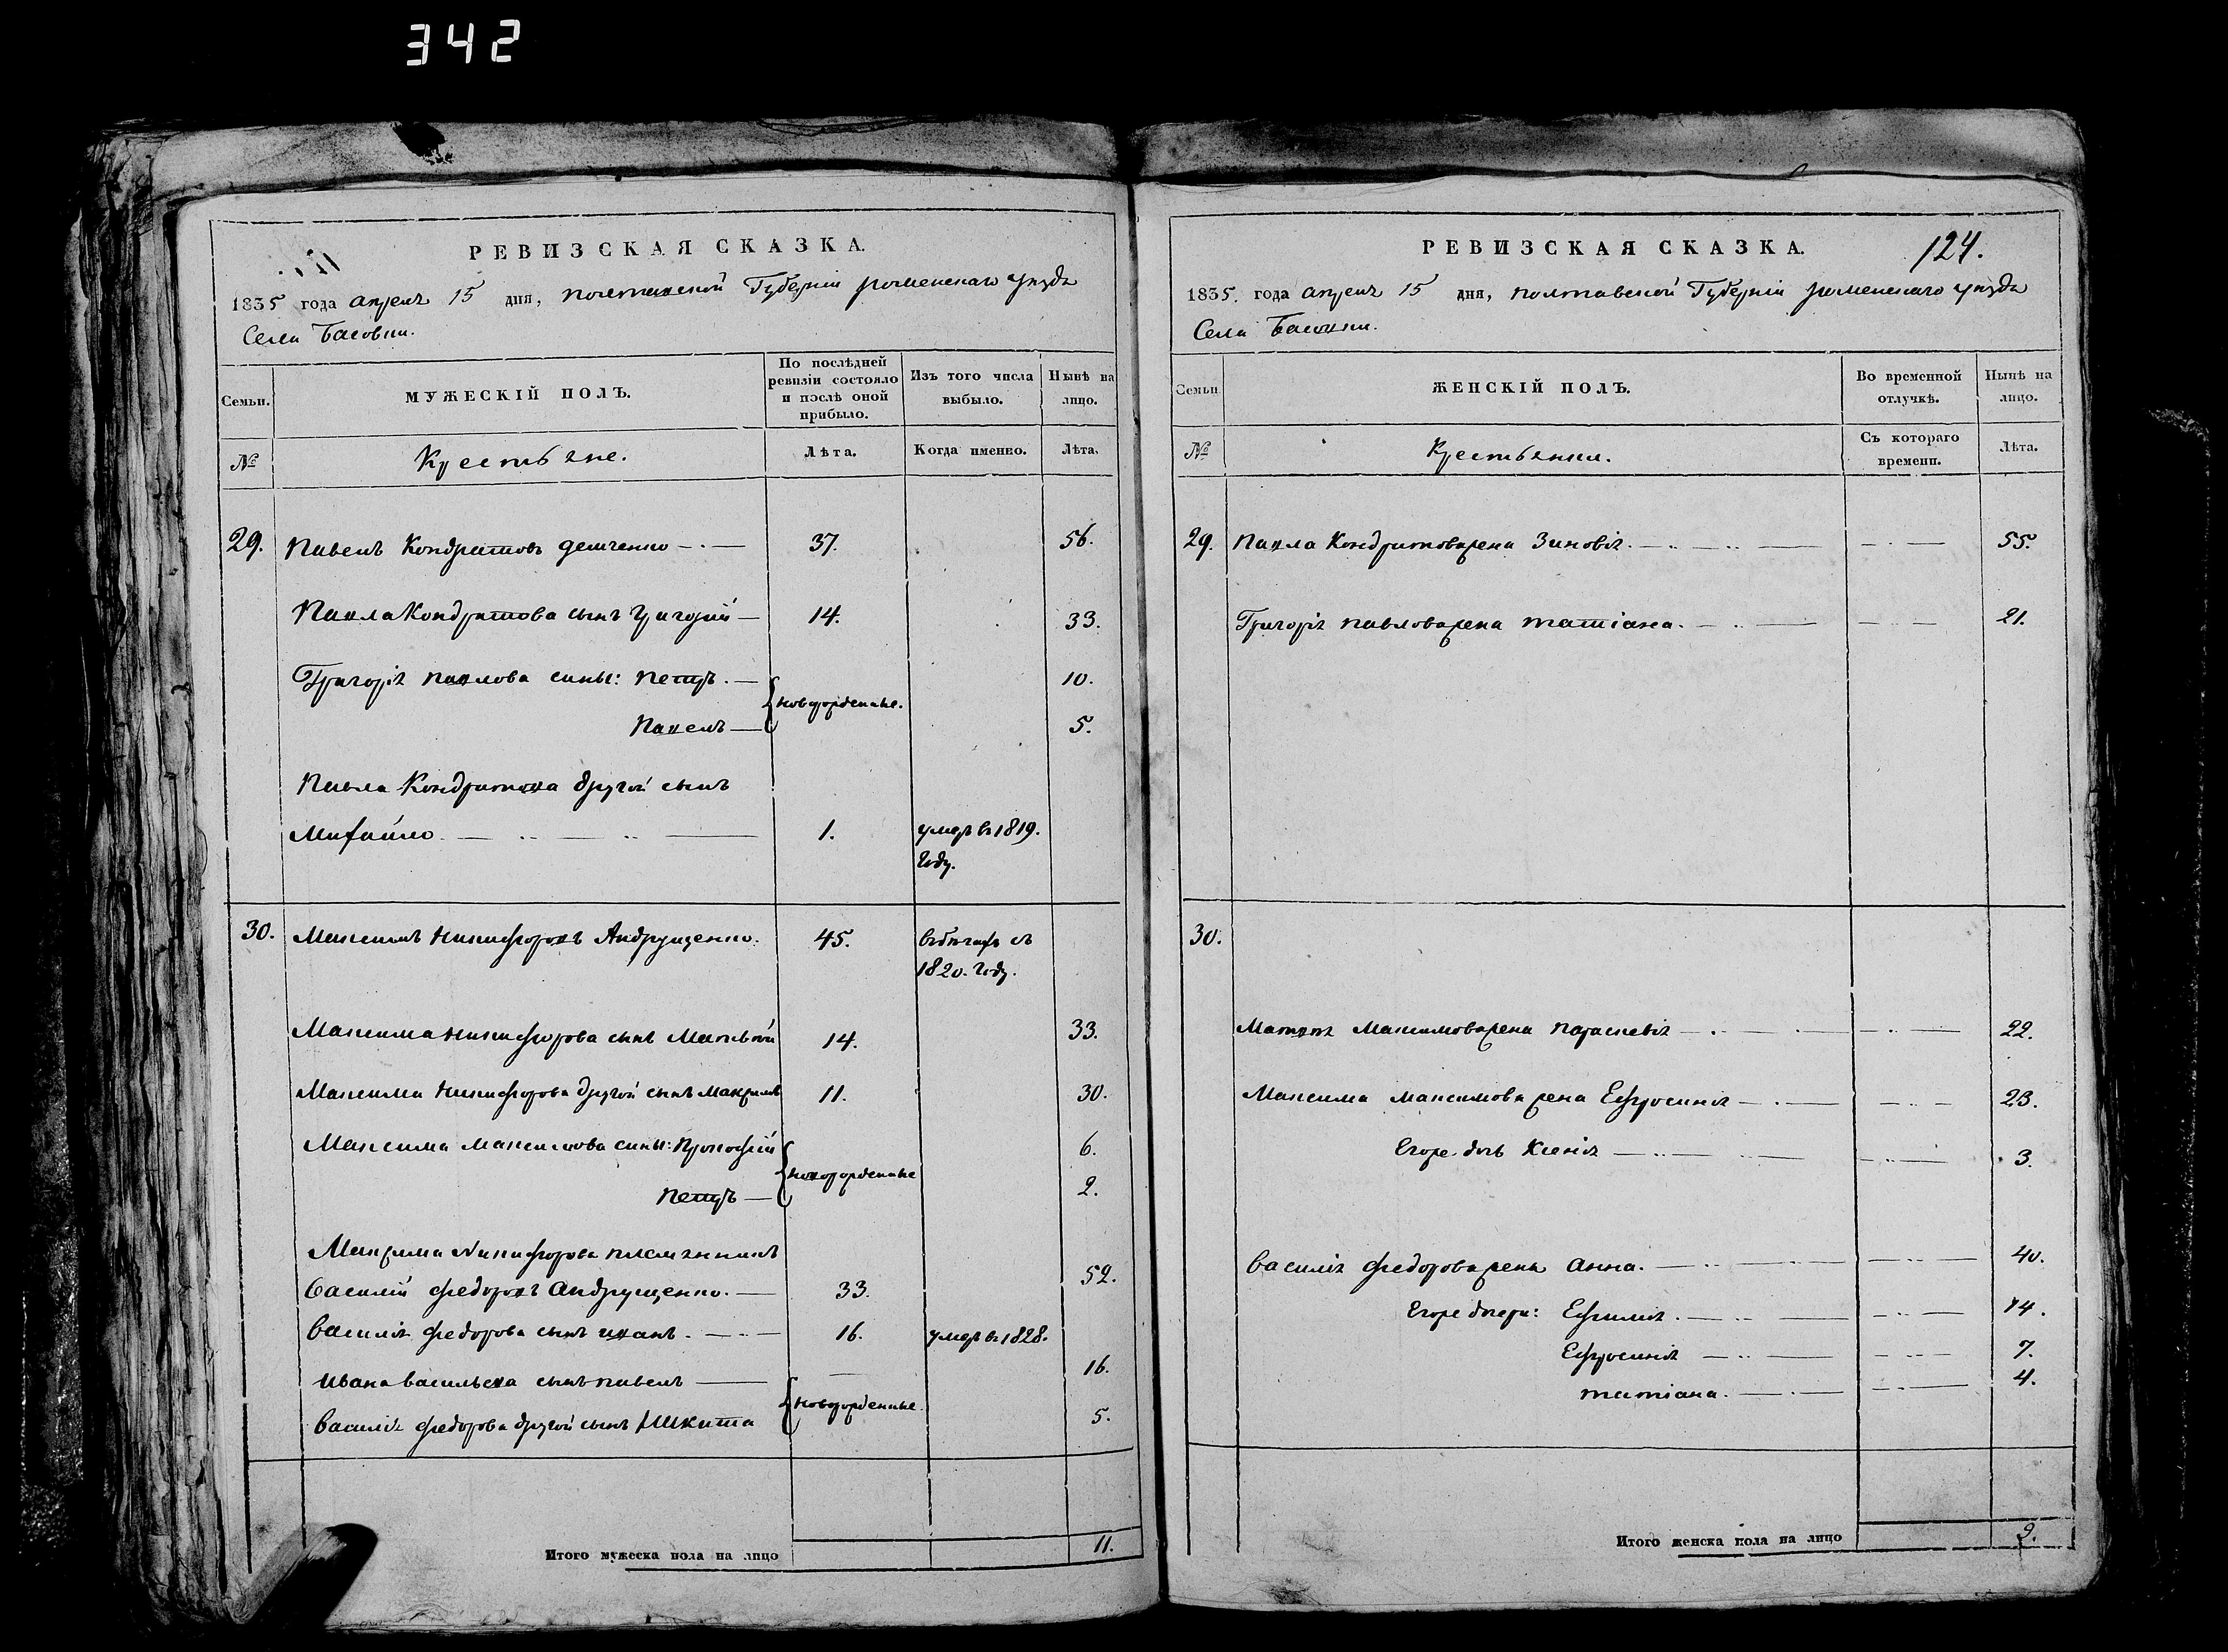 342
РЕВИЗСКАЯ СКАЗКА.
1835 года апреля 15 дня, полтавской Губерніи роменскаго уезда
Села Басовки.
Семьи.
МУЖЕСКІЙ ПОЛЪ.
По послѣдней ревизіи состояло и послѣ оной прибыло.
Изъ того числа выбыло.
Ныне на лицо.
№
Крестьяне.
Лѣта.
Когда именно.
Лѣта.
29. Павелъ Кондратовъ демченко 37. 56.
Павла Кондратова сынъ Григорій 14. 33.
Григорія павлова сины: петръ. новорожденные. 10.
Павелъ 5.
Павла Кондратова другой сынъ
Михайло 1. умеръ въ 1819.
году.
30. Максимъ Никифоровъ Андрущенко. 45. въ
1820. году.
Максима Никифорова сынъ Матвѣй 14. 33.
Максима Никифорова другой сынъ Максимъ 11. 30.
Максима Максимова сины: Прокофій новорожденные 6.
петръ 2.
Максима Никифорова племянникъ
Василій федоровъ Андрущенко. 33. 52.
Василія федорова сынъ иванъ. 16. умеръ въ 1828.
Ивана васильева сынъ павелъ новорожденные 16.
Василія федорова другой сынъ Никита 5.
Итого мужеска пола на лицо 11.
РЕВИЗСКАЯ СКАЗКА. 124.
1835. года апреля 15 дня, полтавской Губерніи роменскаго уезда
Села Басовки.
Семьи
ЖЕНСКІЙ ПОЛЪ.
Во временной отлучкѣ.
Нынѣ на лицо.
№
Крестьянки.
Съ котораго времени.
Лѣта.
29. Павла Кондратова жена Зиновія. 55.
Григорія павлова жена татіана. 21.
30.
Матвѣя Максимова жена параскевія 22.
Максима максимова жена Ефросинія 23.
Егоже дочь Ксенія 3.
Василія федорова жена анна. 40.
Егоже дочери: Ефимія. 14.
Ефросинія 7.
татіана. 4.
Итого женска пола на лицо 9.